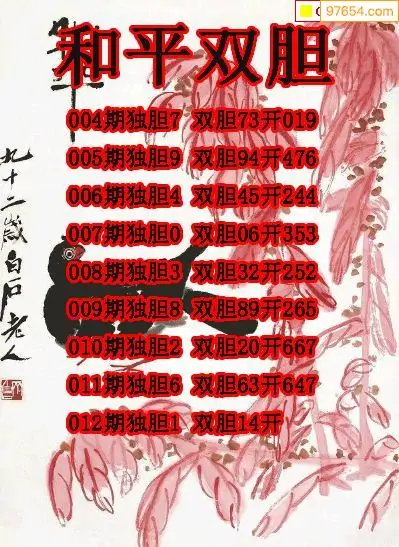 97654.com
和平双胆
004期独胆7 双胆73开019
005期独胆9 双胆94开476
006期独胆4 双胆45开244
007期独胆0 双胆06开353
008期独胆3 双胆32开252
009期独胆8 双胆89开265
010期独胆2 双胆20开667
011期独胆6 双胆63开647
012期独胆1 双胆14开
九十二岁白石老人